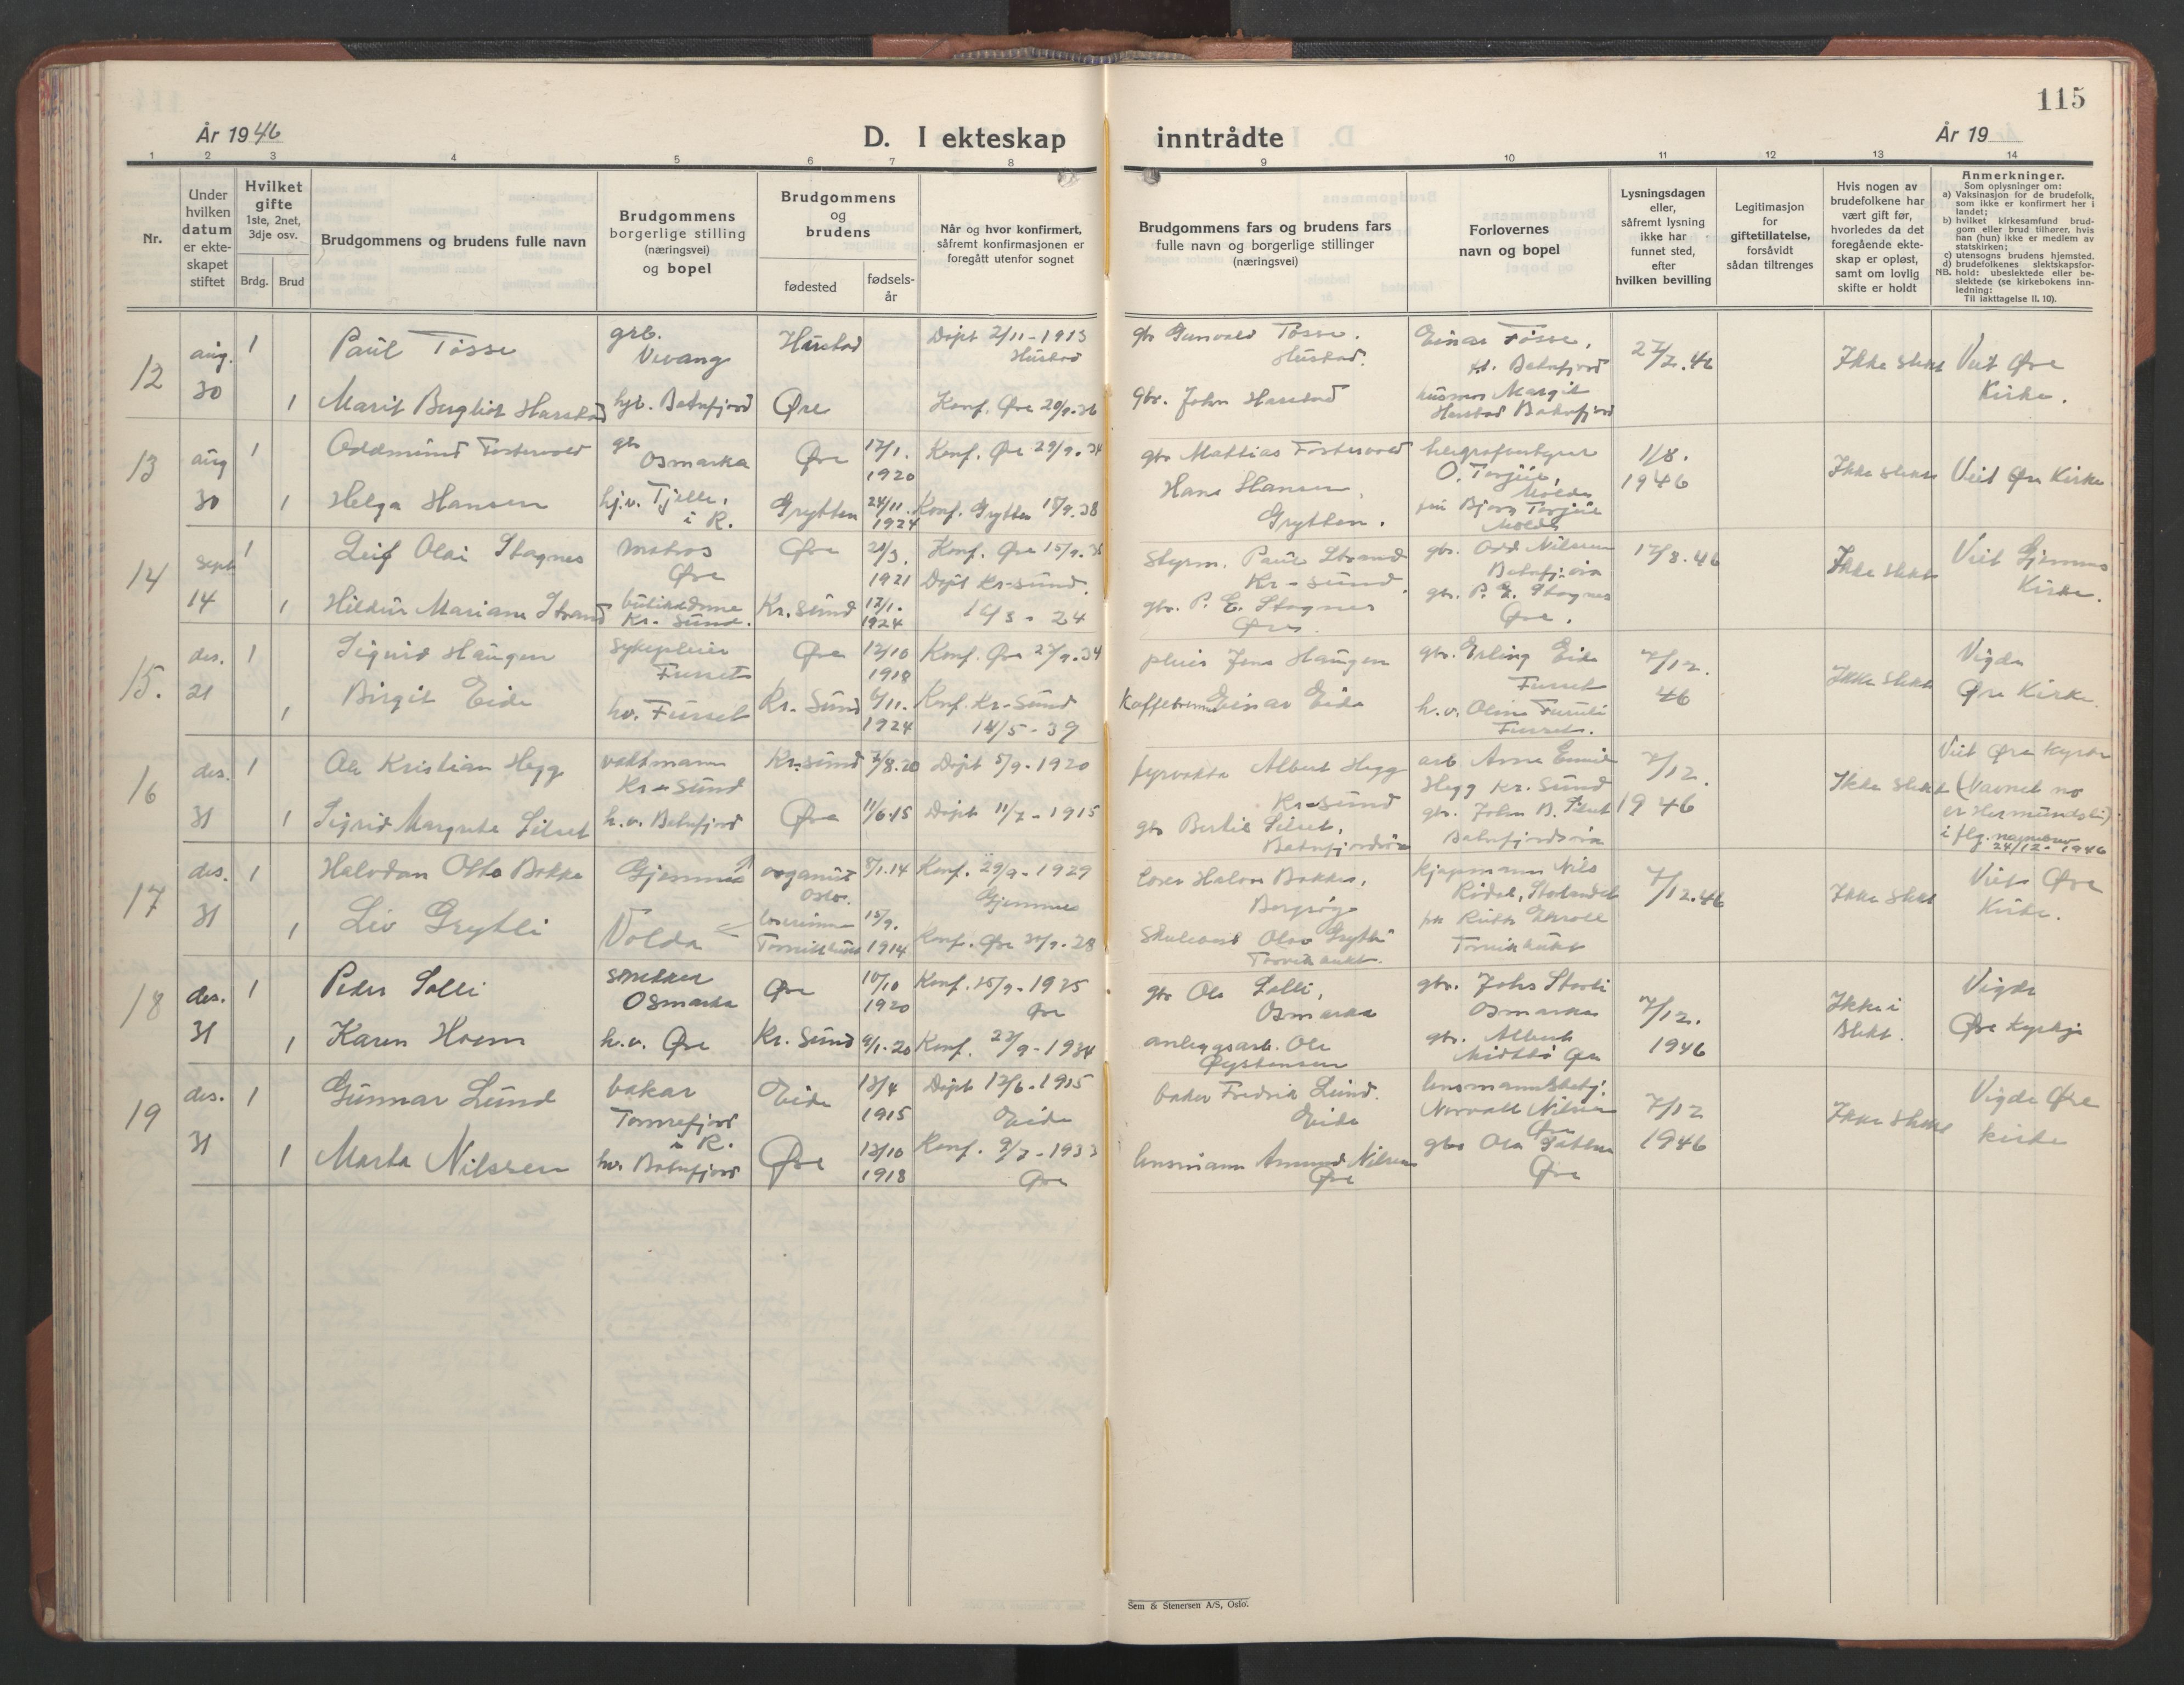 115
År 1946
D. I ekteskap inntrådte
År 19
1 2 3 4 5 6 7 8 9 10 11 12 13 14
Nr.
Under hvilken datum er ekte- skapet stiftet
Hvilket gifte 1ste, 2net, 3dje osv.
Brdg. Brud
Brudgommens og brudens fulle navn
Brudgommens borgerlige stilling (næringsvei) og bopel
Brudgommens og brudens
fødested
fødsels- år
Når og hvor konfirmert, såfremt konfirmasjonen er foregått utenfor sognet
Brudgommens fars og brudens fars fulle navn og borgerlige stillinger (næringsvei)
Forlovernes navn og bopel
Lysningsdagen eller, såfremt lysning ikke har funnet sted, efter hvilken bevilling
Legitimasjon for giftetillatelse, forsåvidt sådan tiltrenges
Hvis nogen av brudefolkene har vært gift før, hvorledes da det foregående ekte- skap er opløst, samt om lovlig skifte er holdt
Anmerkninger.
Som oplysninger om:
a) Vaksinasjon for de brudefolk, som ikke er konfirmert her i landet;
b) hvilket kirkesamfund brud- gom eller brud tilhører, hvis han (hun) ikke er medlem av statskirken;
c) utensogns brudens hjemsted.
d) brudefolkenes slektskapsfor- hold: ubeslektede eller be- slektede (se kirkebokens inn- ledning:
NB.
Til iakttagelse II. 10).
12 aug. 30 1 Paul Tøsse grb. Vevang Hustad Døpt 2/11-1913 Hustad gbr Gunvald Tøsse. Hustad. Einar Tøsse, Batnfjord 27/7.46 Ikke slekt Viet Øre Kirke.
1 Marit Bergliot Harstad Batnfjord Øre Konf. Øre 20/9.36 gbr. John Harstad Margit Harstad Batnfjord
13 aug 30 1 Oddmund Fostervold gbr Osmarka Øre 17/1. 1920 Konf. Øre 29/9.34 gbr Mattias Fostervold O. Molde 1/8. 1946 Ikke slekt Viet Øre Kirke
1 Helga Hansen hj.v. Tjelle, i R. Grytten 24/11. 1924 Konf. Grytten 18/9.38 Hans Hansen, Grytten. Bjørg Molde
14 sept 14 1 Leif Olai Stagnes matros Øre 21/3. 1921 Konf. Øre 15/9.35 Styrm. Paul Strand Kr-sund. gbr. Odd Nilssen 17/8.46 Ikke slekt Viet Gjemnes Kirke.
1 Hildur Mariane Strand Kr-sund. Kr.sund 17/1. 1924 Døpt Kr-sund. 16/3-24 gbr. P. E. Stagnes Øre. gbr. P. E. Stagnes Øre.
15. des. 21 1 Sigurd Haugen sykepleier Furset Øre 12/10 1918 Konf. Øre 27/9.34 pleier Jens Haugen gbr. Erling Eide Furset 7/12. 46 Ikke slekt Vigde Øre Kirke.
1 Birgit Eide hv. Furset Kr. Sund 6/11. 1924 Konf. Kr-Sund 14/5-39 Einar Eide h.v. Furset.
16 des. 31 1 Ole Kristian Hegg vaktmann Kr-sund Kr.sund 7/8.20 Døpt 5/9-1920 fyrvakta Albert Hegg Kr-sund arb. Arne Hegg Kr. Sund 7/12. 1946 Ikke slekt Viet Øre Kyrkje (Navnet no er Hermundsli) i flg. 24/12.1946
1 Sigrid Margrete Silset h.v. Batnfjord Øre 11/6.15 Døpt 11/7-1915 gbr Bertil Silset, Batnfjordsøra gbr. John B. Silset Batnfjordsøra
17 des. 31 1 Halvdan Otto Bakke Gjemnes organist Oslo. 8/1.14 Konf. 29/9-1929 Gjemnes Halvor Bakke, Bergsøy kjøpmann Nils 7/12.46 Ikke slekt Viet Øre Kirke.
1 Liv Grytli Volda lærerinne 15/9. 1914 Konf. Øre 28 Olav Grytli Torvikbukt. Torvikbukt
18 des. 31 1 Peder Solli snekker Osmarka Øre 10/10 1920 Konf. 15/9-1935 Øre gbr Ole Solli, Osmarka gbr. Johs Storli Osmarka 7/12. 1946 Ikke i Slekt. Vigde Øre Kyrkje
1 Karen Hoem h.v. Øre Kr. Sund 9/1.20 Konf. 23/9-1934 anleggsarb. Ole Øystensen gbr. Albert Øre
19 des. 31 1 Gunnar Lund bakar Tomrefjord i R. Eide 13/4 1915 Døpt 13/6-1915 Eide baker Fredrik Lund. Eide Norvall Nilssen Øre 7/12 1946 Ikke slekt Vigde Øre kirke
1 Marta Nilssen hv. Batnfjord Øre 13/10 1918 Konf. 9/7-1933 Øre lensmann Amund Nilssen Øre gbr Ola Øre
Sem & Stenersen A/S, Oslo.